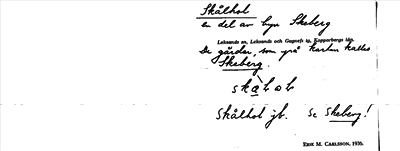 Skålhol
en del av byn Skeberg
Leksands sn, Leksands och Gagnefs tg, Kopparbergs län.
De gårdar, som på kartan kallas
Skeberg.
Skålhol jb. Se Skeberg!
ERIK M. CARLSSON, 1935.